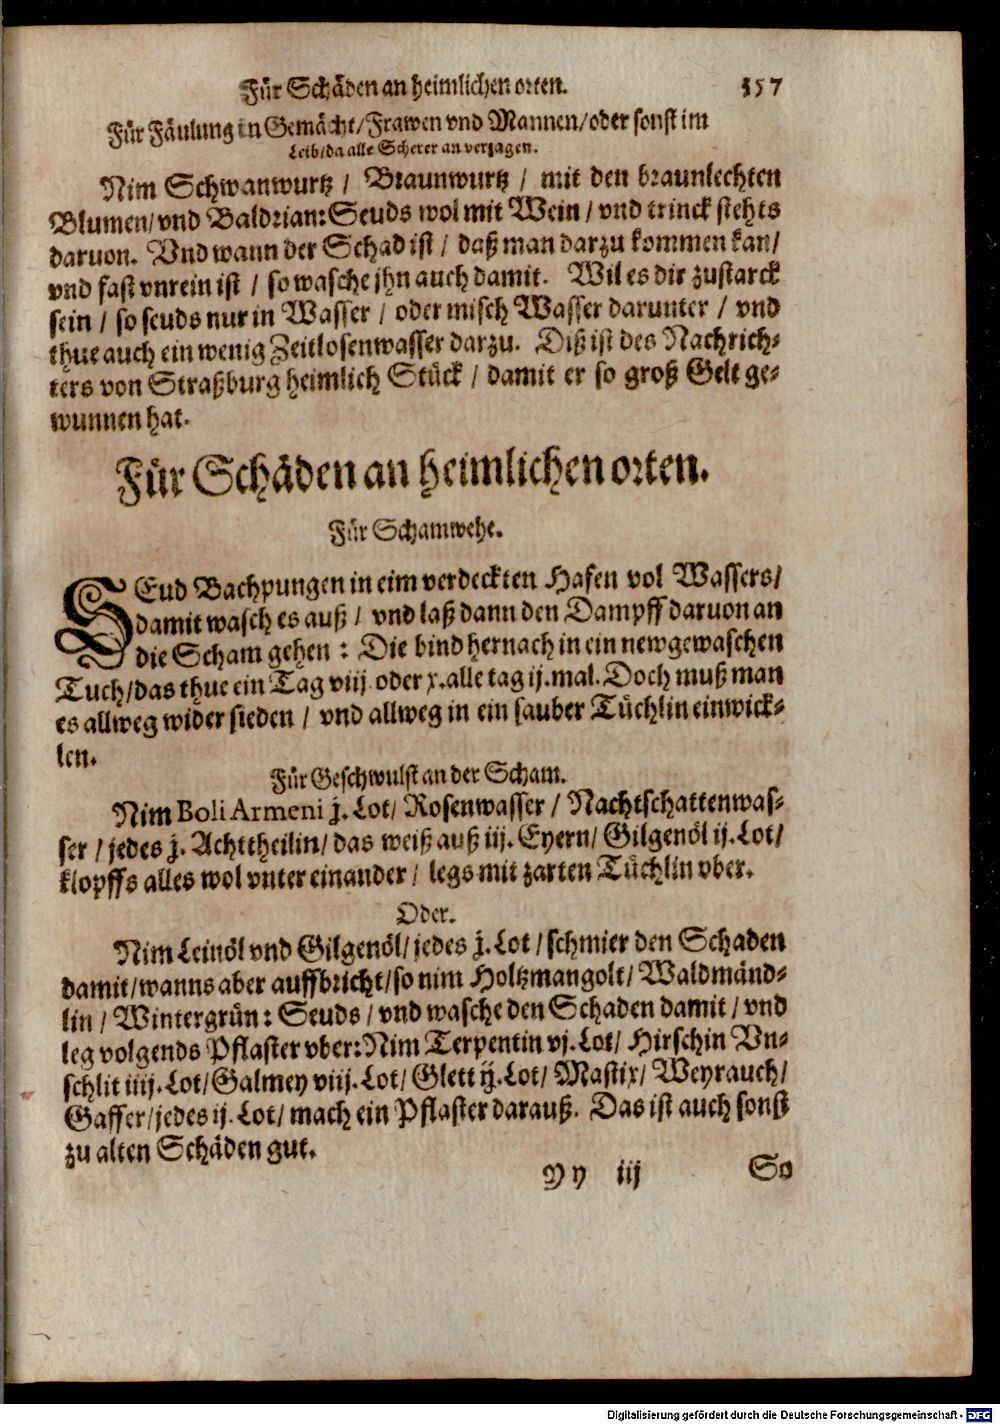 Für Schäden an heimlichen orten. 357
Für Fäulung in Gemächt/Frawen vnd Mannen/oder sonst im
Leib/da alle Scherer an verzagen.
Nim Schwanwurtz / Braunwurtz / mit den braunlechten
Blumen/vnd Baldrian: Seuds wol mit Wein / vnd trinck stehts
daruon. Vnd wann der Schad ist / daß man darzu kommen kan/
vnd fast vnrein ist / so wasche jhn auch damit. Wil es dir zustarck
sein / so seuds nur in Wasser / oder misch Wasser darunter / vnd
thue auch ein wenig Zeitlosenwasser darzu. Diß ist des Nachrich-
ters von Straßburg heimlich Stück / damit er so groß Gelt ge-
wunnen hat.
Für Schäden an heimlichen orten.
Für Schamwehe.
SEud Bachpungen in eim verdeckten Hafen vol Wassers/
damit wasch es auß / vnd laß dann den Dampff daruon an
die Scham gehen : Die bind hernach in ein newgewaschen
Tuch/das thue ein Tag viij oder x. alle tag ij. mal. Doch muß man
es allweg wider sieden / vnd allweg in ein sauber Tüchlin einwick-
len.
Für Geschwulst an der Scham.
Nim Boli Armeni j. Lot/ Rosenwasser / Nachtschattenwas-
ser / jedes j. Achttheilin/ das weiß auß iij. Eyern/ Gilgenöl ij. Lot/
klopffs alles wol vnter einander / legs mit zarten Tüchlin vber.
Oder.
Nim Leinöl vnd Gilgenöl/ jedes j. Lot / schmier den Schaden
damit/wanns aber auffbricht/so nim Holtzmangolt/ Waldmänd-
lin / Wintergrün: Seuds / vnd wasche den Schaden damit / vnd
leg volgends Pflaster vber: Nim Terpentin vj. Lot/ Hirschin Vn-
schlit iiij. Lot/ Galmey viij. Lot/ Glett ij. Lot/ Mastix/ Weyrauch/
Gaffer/jedes ij. Lot/ mach ein Pflaster darauß. Das ist auch sonst
zu alten Schäden gut.
Yy iij So
Digitalisierung gefördert durch die Deutsche Forschungsgemeinschaft - DFG